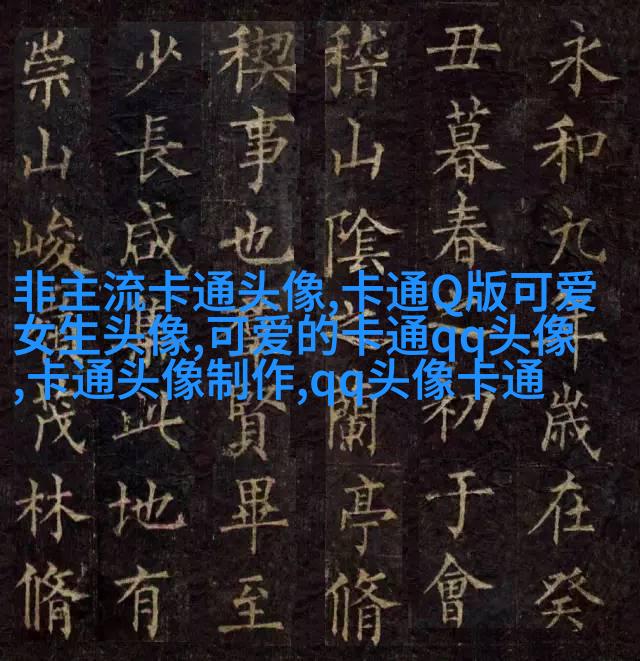 永和九年歲在癸
丑暮春初于會
稽山陰蘭亭脩
稧事也賢畢至
少長咸集此地有
崇山峻茂林脩
非主流卡通头像,卡通Q版可爱
女生头像,可爱的卡通qq头像
,卡通头像制作,qq头像卡通